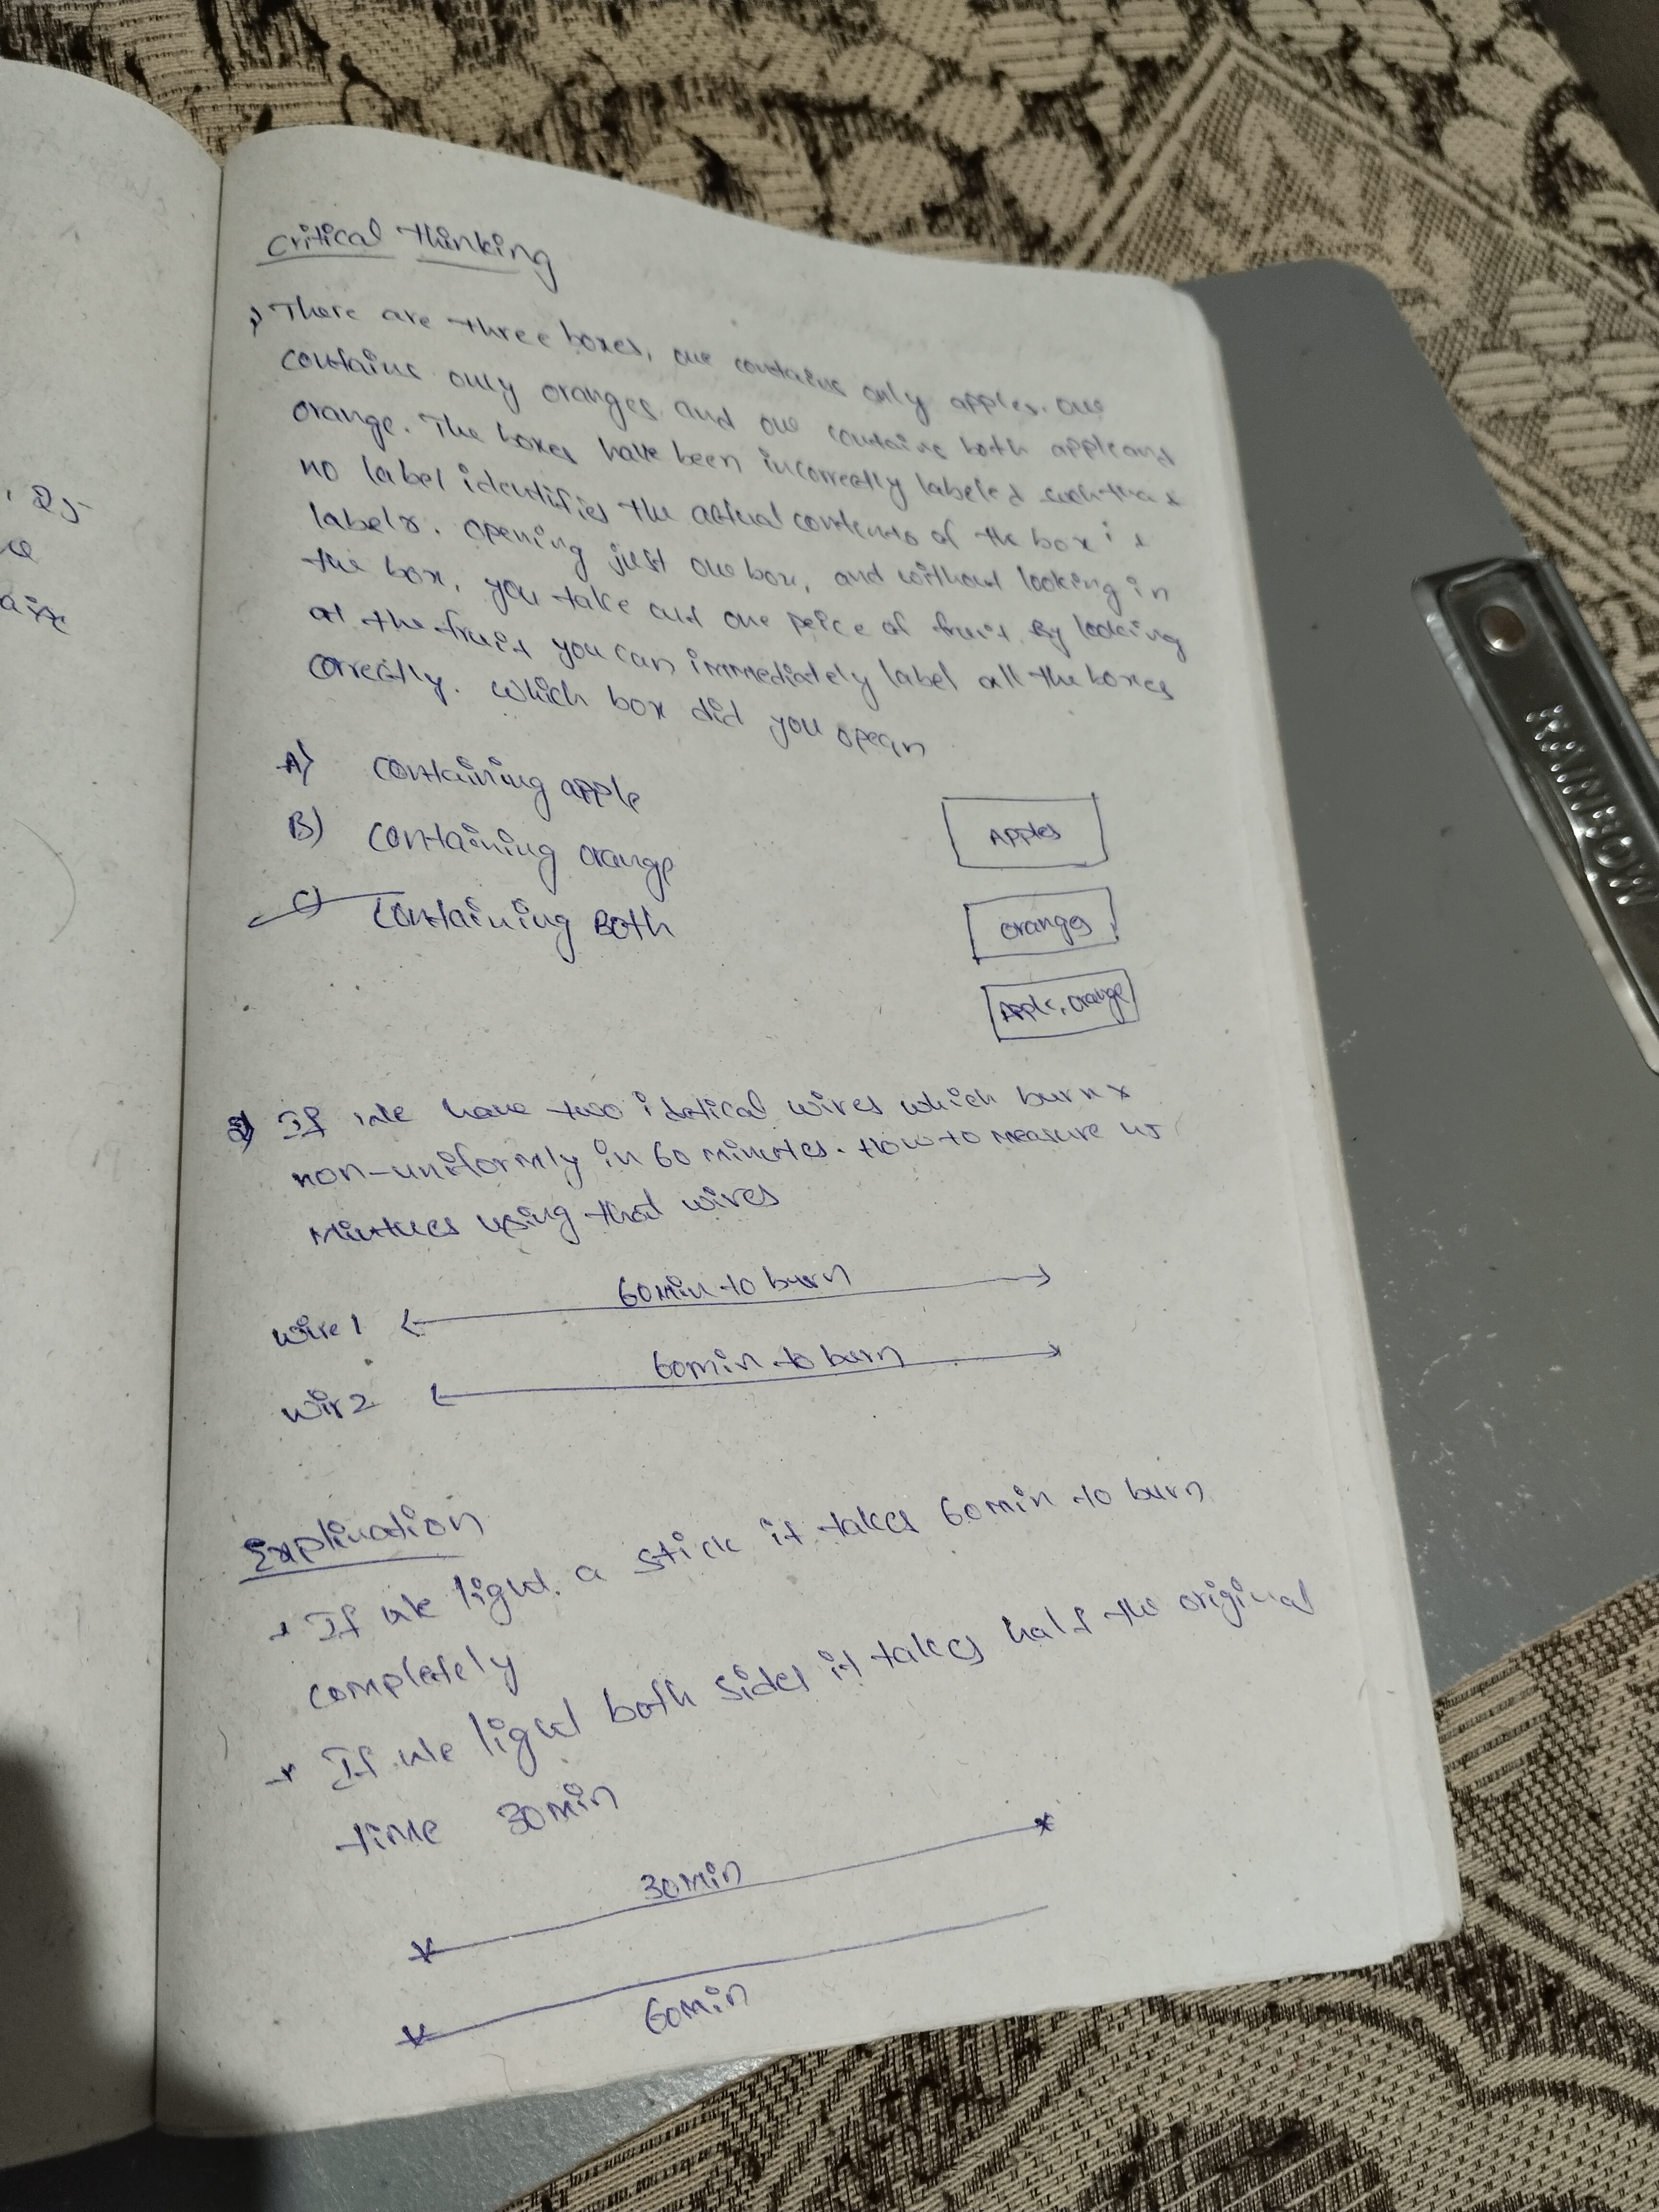 Critical Thinking
1) There are three boxes, one contains only apples. one
contains only oranges and one contains both apple and
orange. The boxes have been incorrectly labeled such that
no label identifies the actual contents of the box
labels. opening just one box, and without looking in
the box, you take out one peice of fruit. By looking
at the fruit you can immediately label all the boxes
correctly. which box did you
A) containing apple
B) containing orange
C) containing Both
Apples
oranges
Apple, orange
2) If we have two idetical wires which burn
non-uniformly in 60 minutes. How to measure 45
using that wires
wire 1 60min to burn
wir2 60min to burn
If we light a stick it takes 60min to burn
completely
If we light both sides it takes half the original
time 30min
30min
60min
RAINBOW